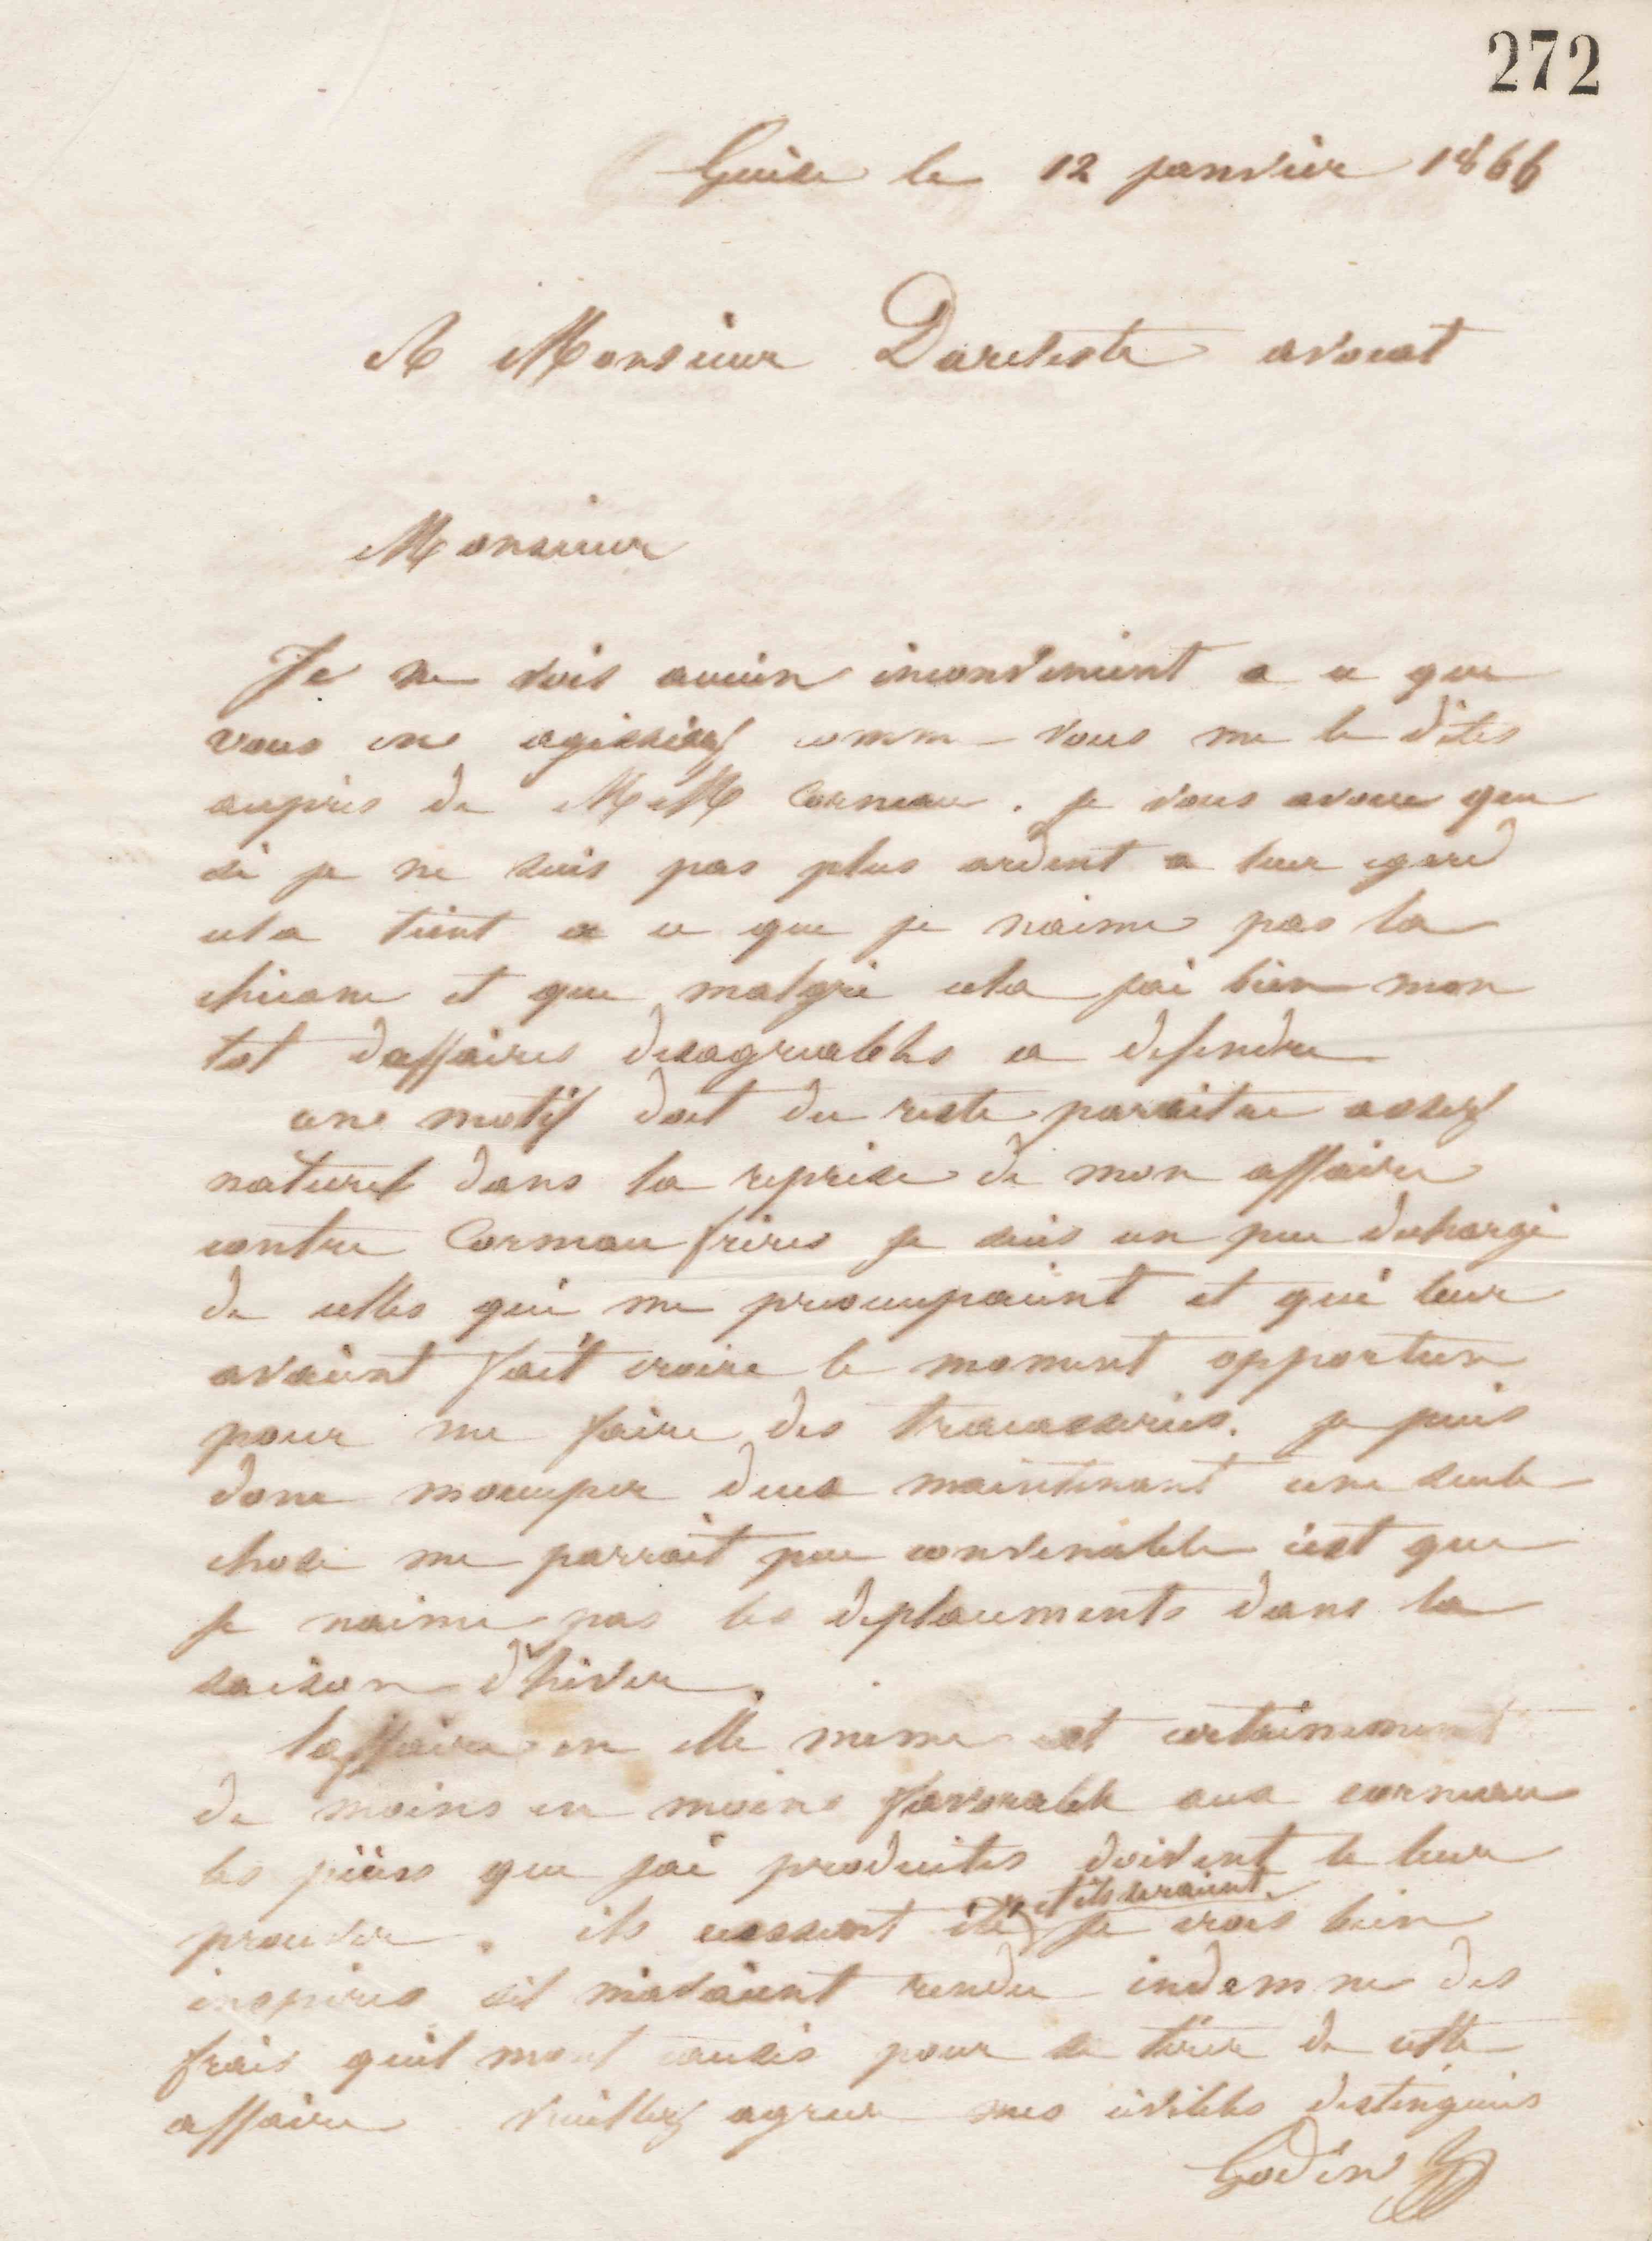 272
Guise le 12 janvier 1866
A Monsieur Dareste avocat
Monsieur
Je ne vois aucun inconvenient a ce que
vous en agissiez comme vous me le dites
aupres de MM Corneau. je vous avoue que
si je ne suis pas plus ardent a leur egard
cela tient a ce que je naime pas la
chicane et que malgré cela jai bien mon
lot daffaires desagreables a defendre
une motif doit du reste paraitre assez
naturel dans la reprise de mon affaire
contre Corneau frères je suis un peu dechargé
de celles qui me preocupaient et qui leur
avaient fait croire le moment opportun
pour me faire des tracasseries. je puis
donc mocuper deux maintenant une seule
chose me parrait peu convenable cest que
je naime pas les deplacements dans la
saison d'hiver.
laffaire en elle meme est certainement
de moins en moins favorable aux corneau
les pièces que jai produites doivent le leur
prouver. ils eussent été et ils seraient je crois bien
inspirés sil mavaient rendu indemne des
frais quil mont causés pour se tirer de cette
affaire veuillez agreer mes civilités distinguées
Godin